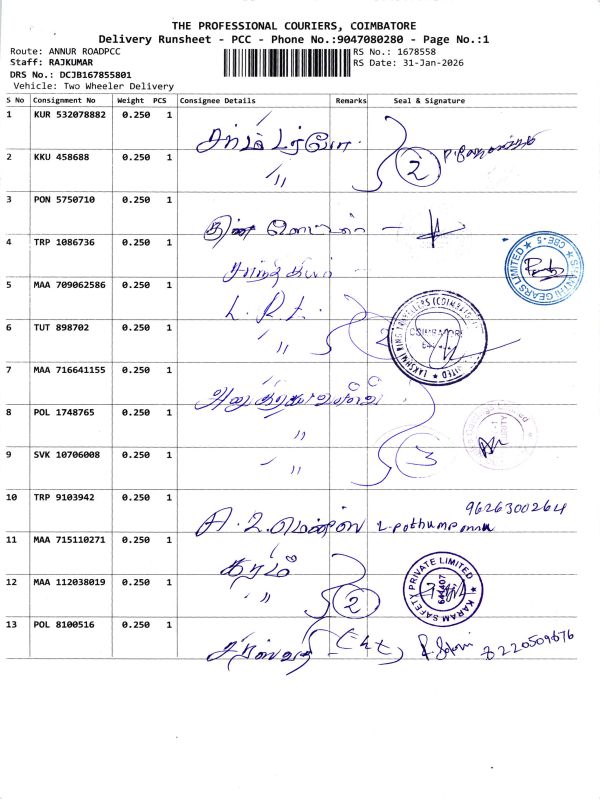 THE PROFESSIONAL COURIERS, COIMBATORE
Delivery Runsheet - PCC - Phone No.:9047080280 - Page No.:1
Route: ANNUR ROADPCC
RS No.: 1678558
Staff: RAJKUMAR
RS Date: 31-Jan-2026
DRS No.: DCJB167855801
Vehicle: Two Wheeler Delivery
S No Consignment No Weight PCS Consignee Details Remarks Seal & Signature
1 KUR 532078882 0.250 1
2 KKU 458688 0.250 1 〃 2
3 PON 5750710 0.250 1
4 TRP 1086736 0.250 1
SHANTHI GEARS LIMITED ★ CBE-5 ★
5 MAA 709062586 0.250 1 L. R. t.
6 TUT 898702 0.250 1 〃 2
LAKSHMI RING TRAVELLERS (COIMBATORE) LIMITED ★
COIMBATORE
7 MAA 716641155 0.250 1
8 POL 1748765 0.250 1 〃
9 SVK 10706008 0.250 1 〃 3
10 TRP 9103942 0.250 1 9626300264
11 MAA 715110271 0.250 1 கரம்
12 MAA 112038019 0.250 1 〃 2
KARAM SAFETY PRIVATE LIMITED ★
641407
13 POL 8100516 0.250 1 8220509676